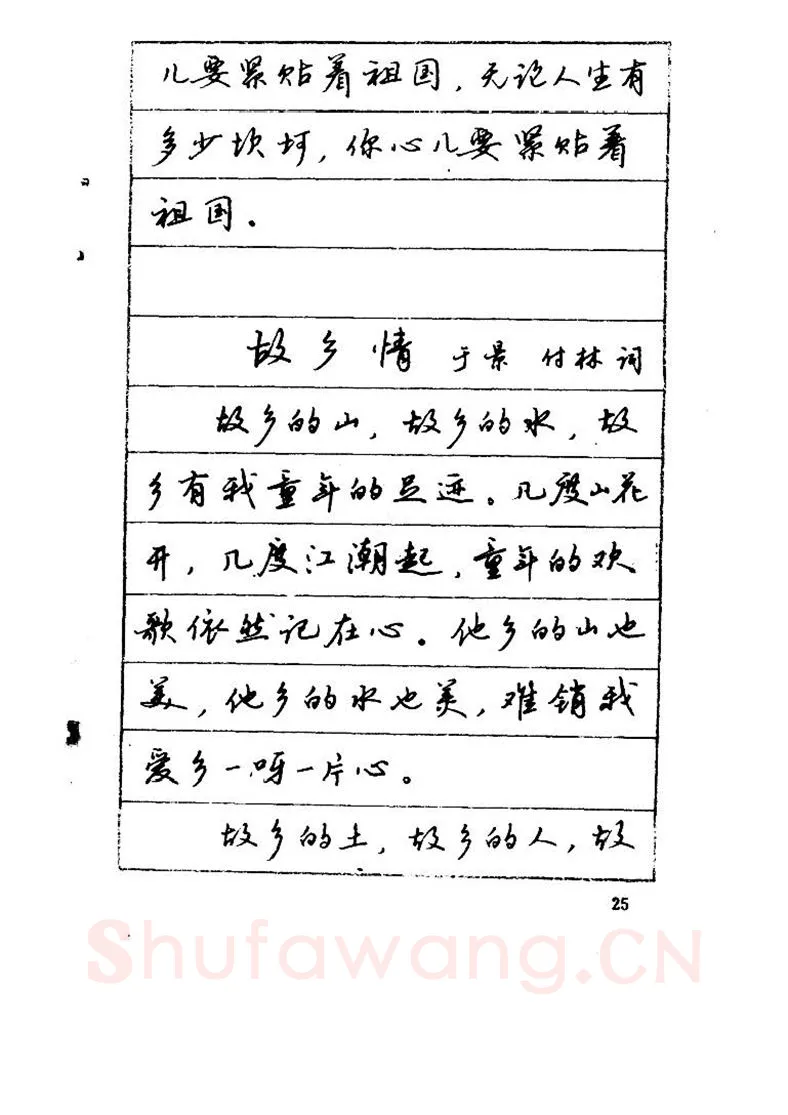 儿要紧贴着祖国，无论人生有
多少坎坷，你心儿要紧贴着
祖国。
故乡情 于景 付林 词
故乡的山，故乡的水，故
乡有我童年的足迹。几度山花
开，几度江潮起，童年的欢
歌依然记在心。他乡的山也
美，他乡的水也美，难销我
爱乡一呀一片心。
故乡的土，故乡的人，故
25
Shufawang.CN